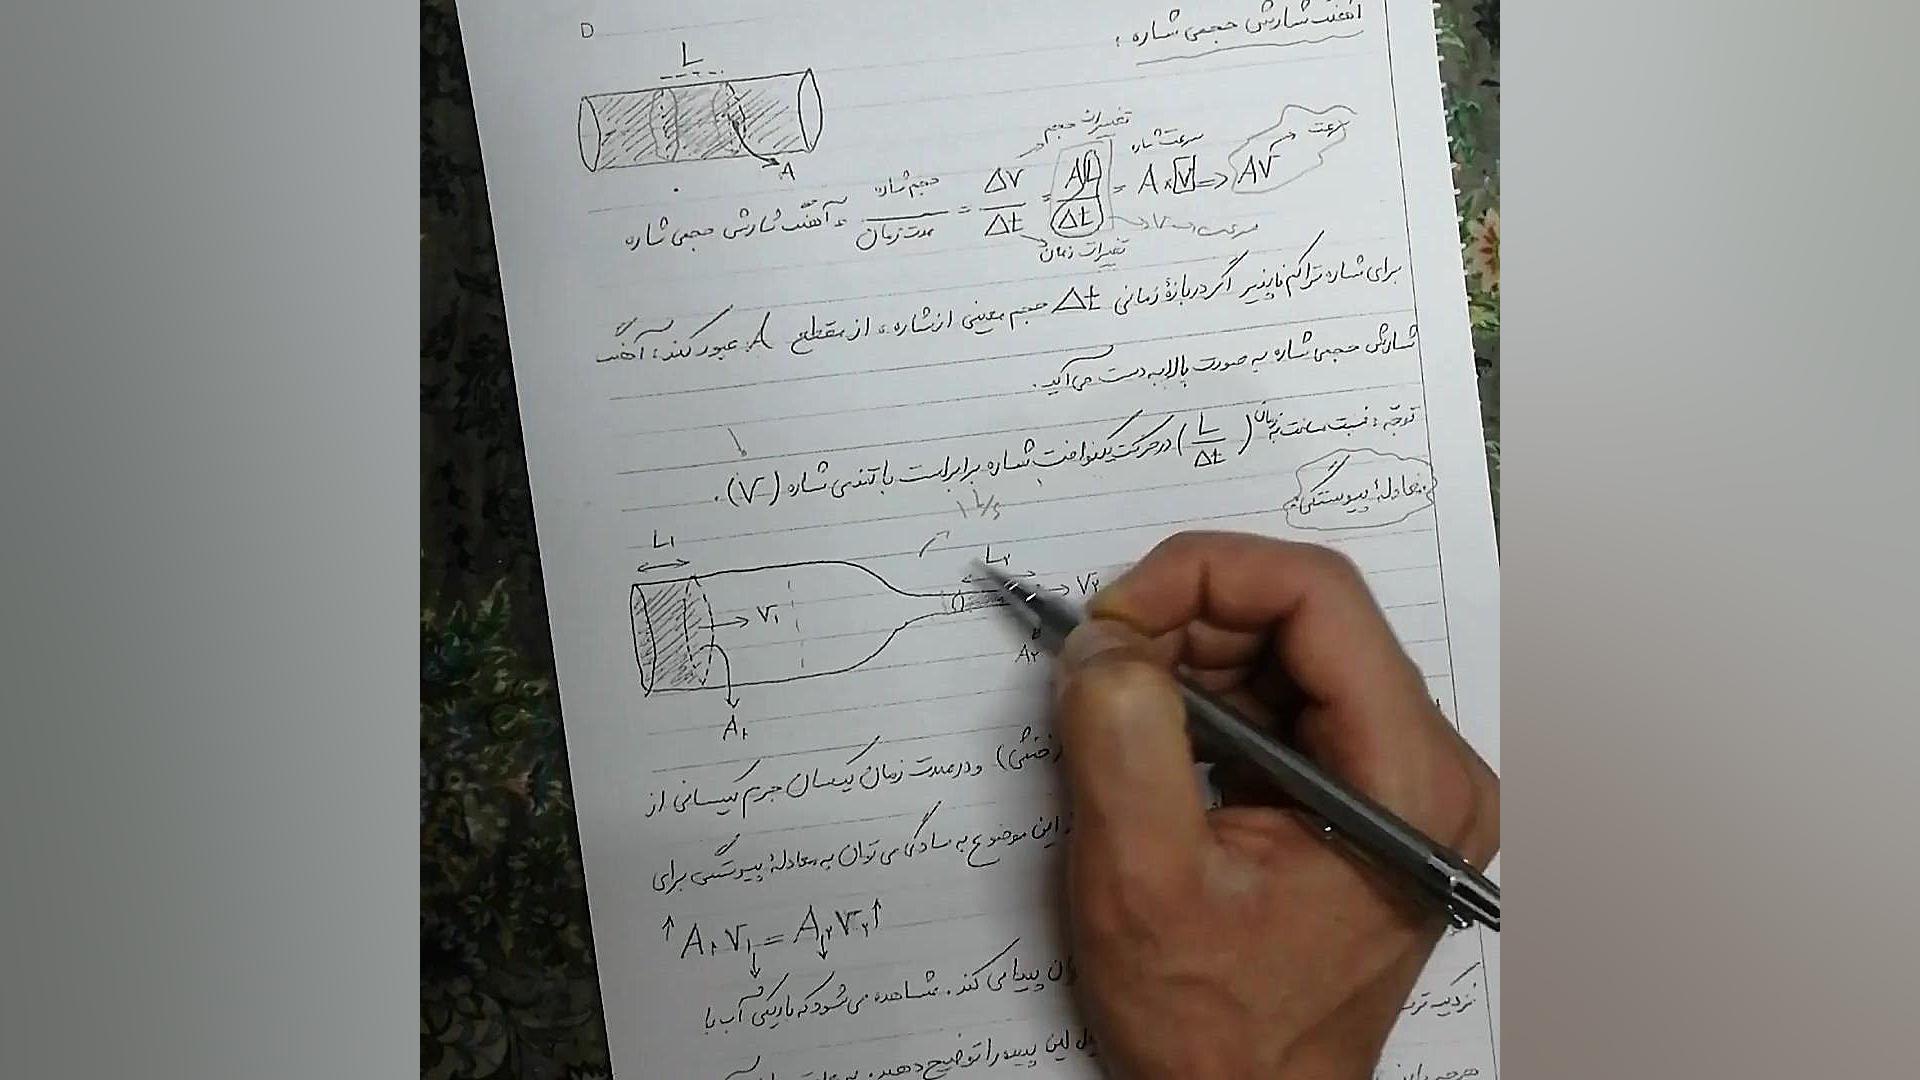 آهنگ شارش حجمی شاره :
L
A
آهنگ شارش حجمی شاره = حجم شاره / مدت زمان = ΔV / Δt = AL / Δt = A × V => AV
تغییرات حجم
سرعت شاره
سرعت
تغییرات زمان
سرعت => V
برای شاره تراکم ناپذیر اگر در بازهٔ زمانی Δt حجم معینی از شاره، از مقطع A عبور کند، آهنگ
شارش حجمی شاره به صورت بالا به دست می آید.
توجّه : نسبت مسافت به زمان (L / Δt) در حرکت یکنواخت شاره برابر است با تندی شاره (V).
معادلهٔ پیوستگی:
۱ L/s
L₁
L₂
V₁
V₂
A₁
A₂
و در مدت زمان یکسان جرم یکسانی از
این موضوع به سادگی می توان به معادلهٔ پیوستگی برای
↑ A₁ V₁ ↓ = A₂ ↓ V₂ ↑
پیدا می کند. مشاهده می شود که باریکی آب با
نزدیک تر
این پدیده را توضیح دهید.